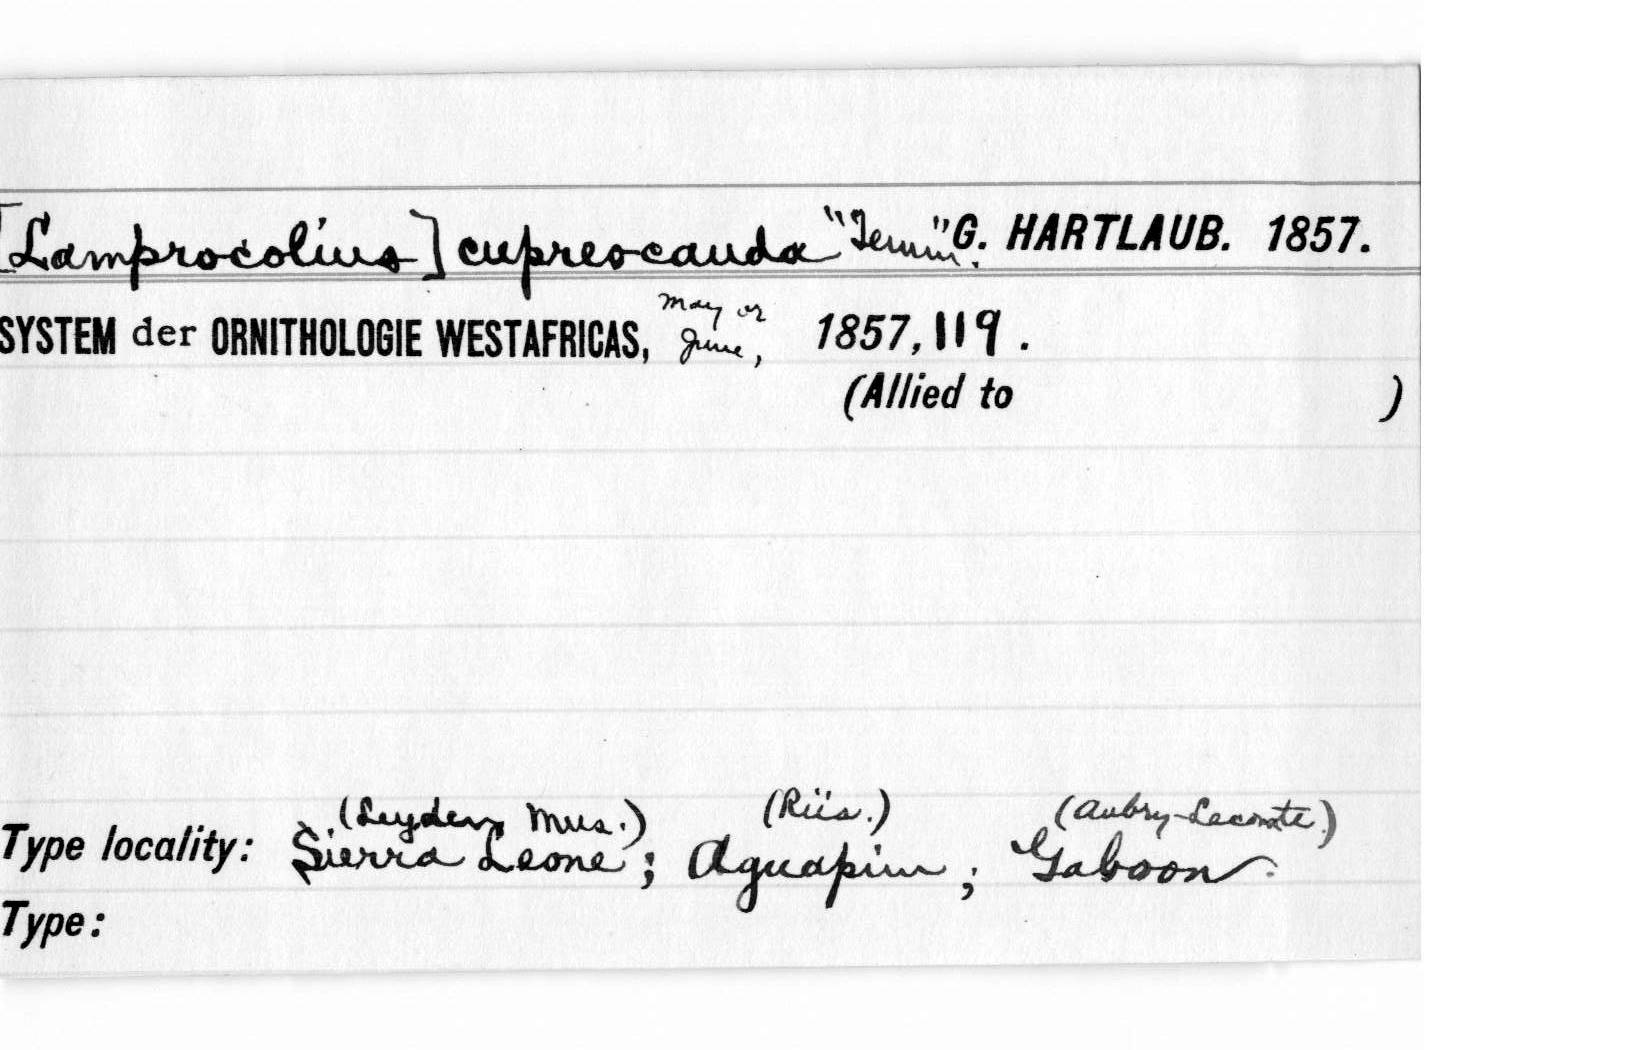 [Lamprocolius] cupreocauda "Temm." G. HARTLAUB. 1857.
SYSTEM der ORNITHOLOGIE WESTAFRICAS, May or June, 1857, 119.
(Allied to )
(Leyden Mus.) (Riis.) (Aubry-Lecomte.)
Type locality: Sierra Leone; Aguapim; Gaboon.
Type: